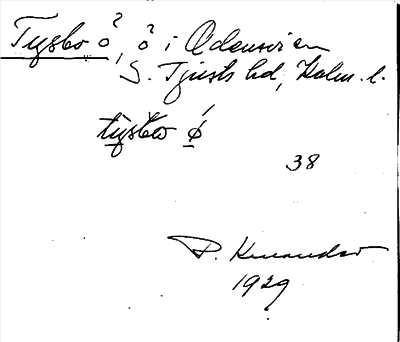 Tysbo ö?, ö? i Odensvien
S. Tjusts hd, Kalm. l.
tysbo ǿ
38
1929